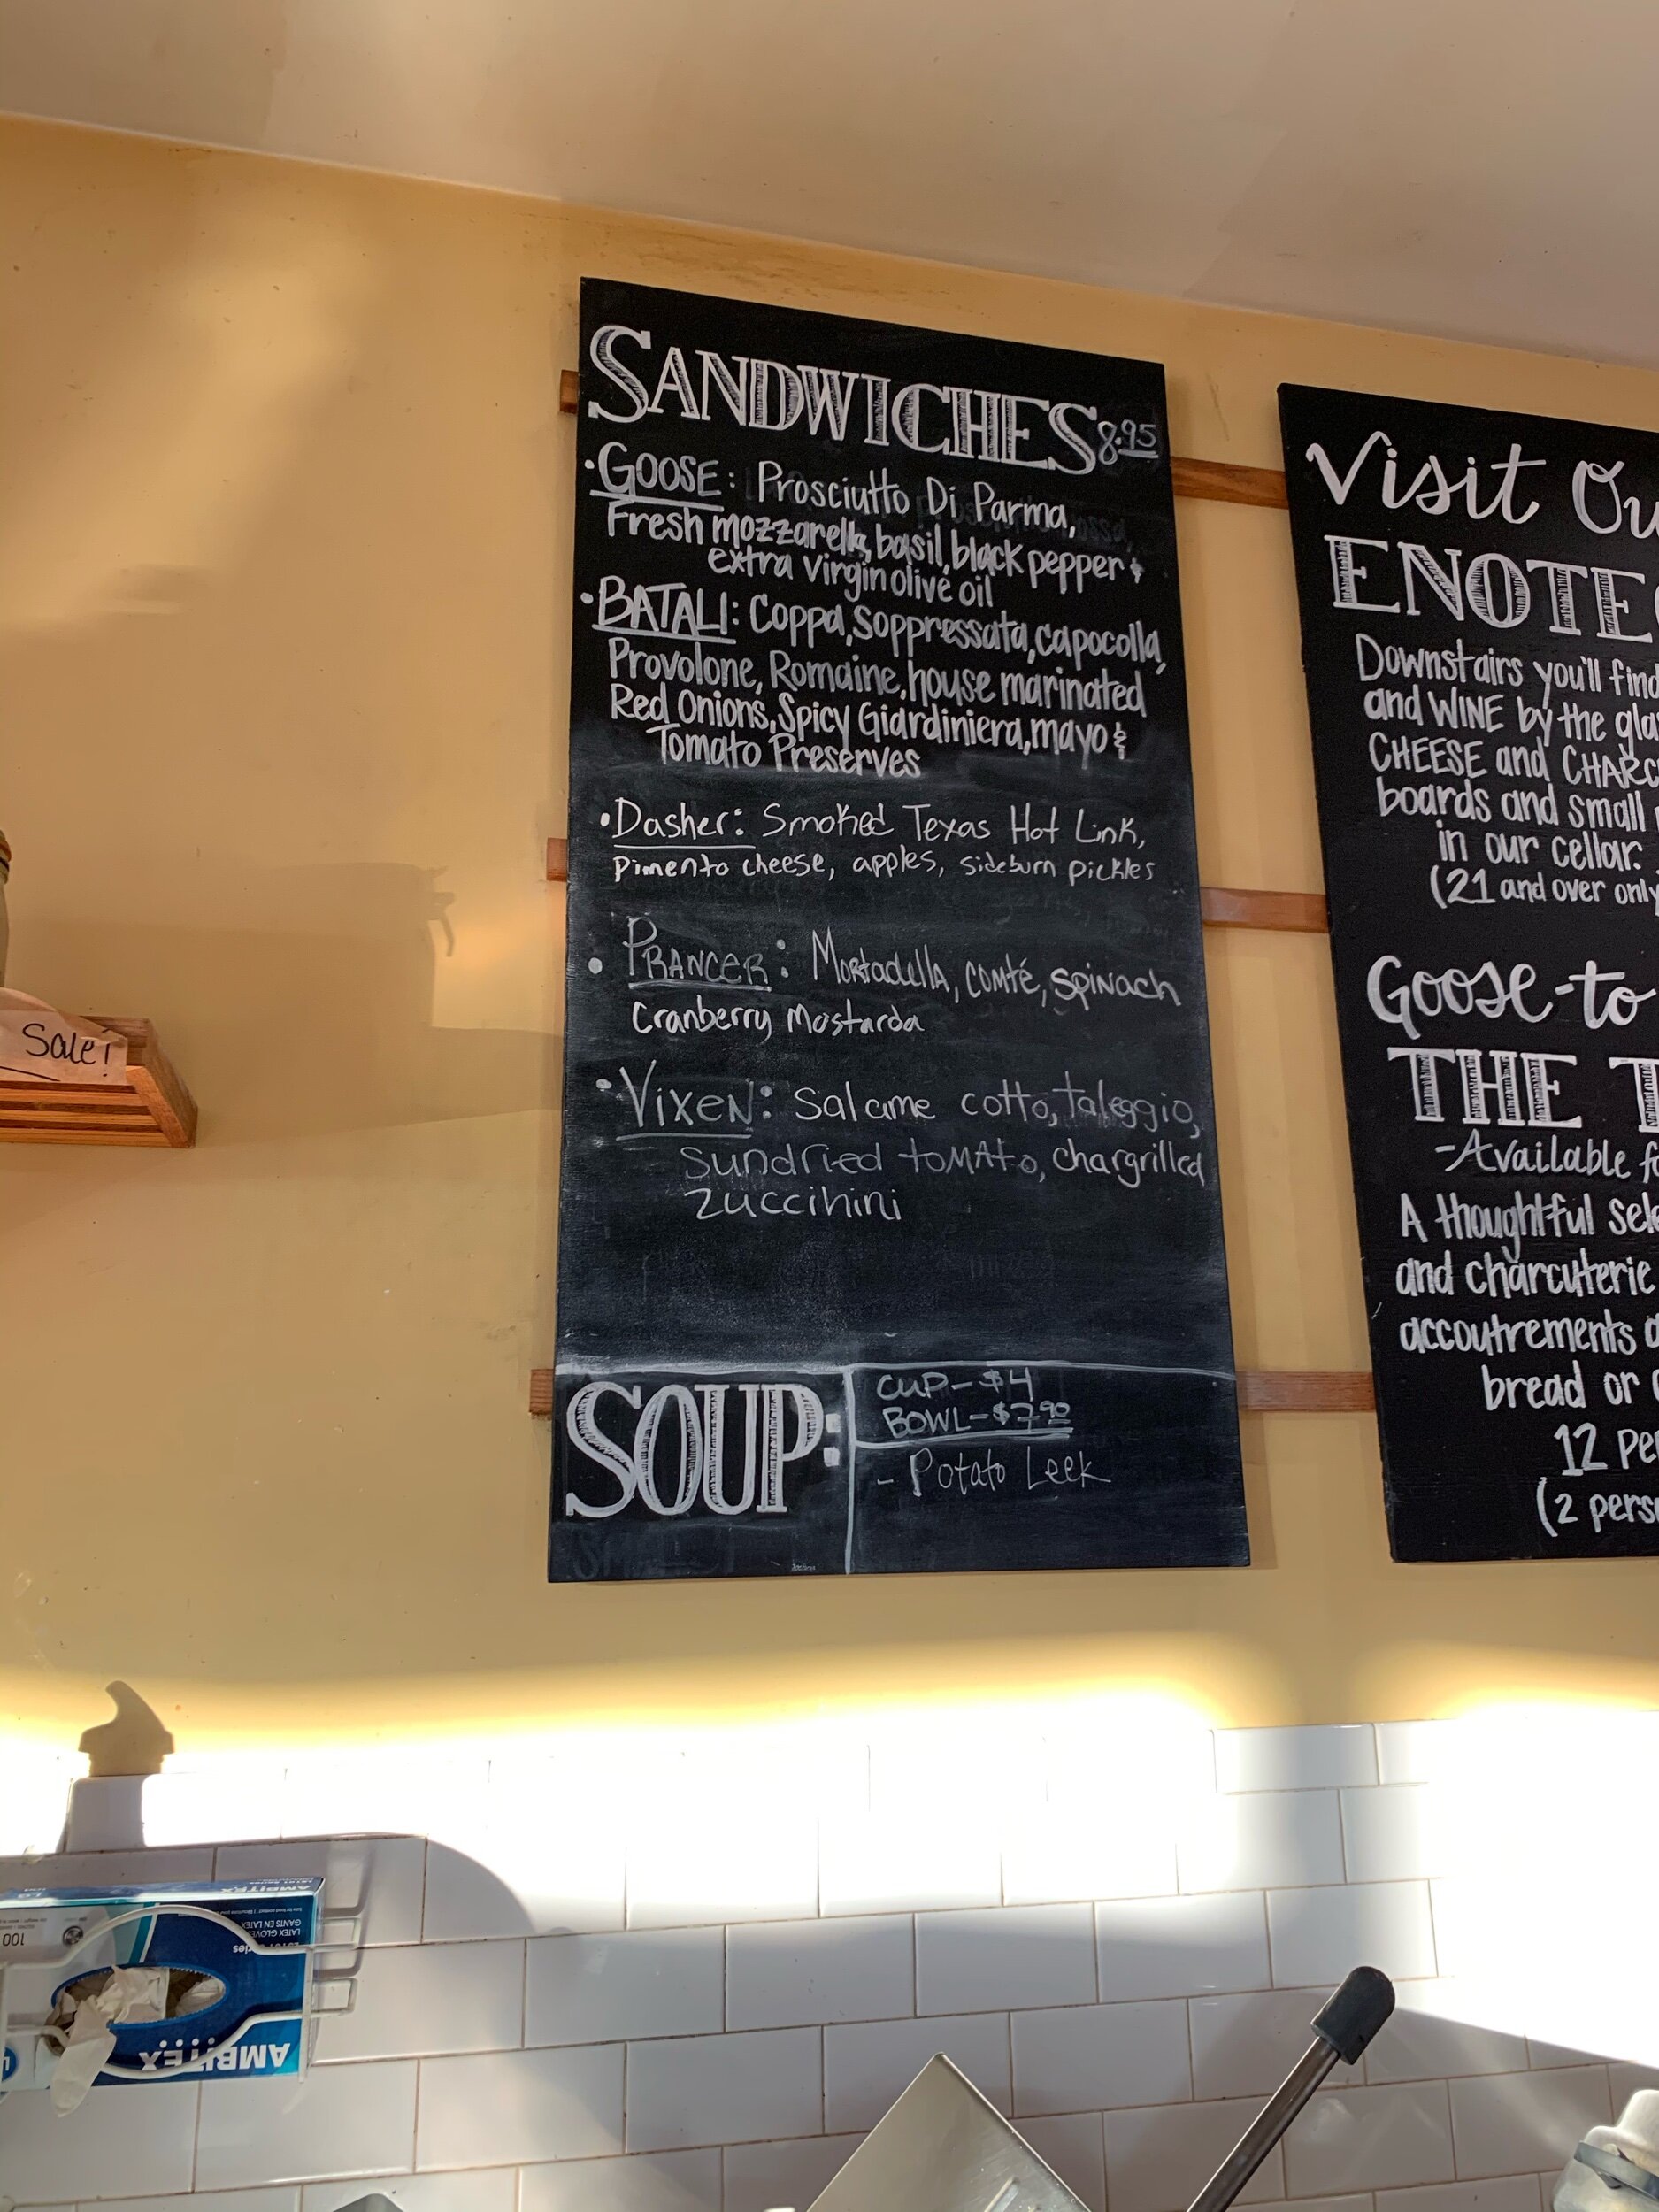 SANDWICHES 8.95
• GOOSE: Prosciutto Di Parma,
Fresh mozzarella, basil, black pepper &
extra virgin olive oil
• BATALI: Coppa, Soppressata, capocolla,
Provolone, Romaine, house marinated
Red Onions, Spicy Giardiniera, mayo &
Tomato Preserves
• Dasher: Smoked Texas Hot Link,
pimento cheese, apples, sideburn pickles
• PRANCER: Mortadella, comté, spinach
Cranberry Mostarda
• VIXEN: Salame cotto, taleggio,
sundried tomato, chargrilled
zuccihini
SOUP:
CUP - $4
BOWL - $7.90
- Potato Leek
Visit Ou
ENOTEC
Downstairs you'll find
and WINE by the gla
CHEESE and CHARC
boards and small
in our cellar.
(21 and over only
Goose-to
THE T
-Available fo
A thoughtful sele
and charcuterie
accoutrements a
bread or
12 per
(2 pers
Sale!
AMBITEX
LATEX GLOVE
GANTS EN LATEX
100
AMBITEX